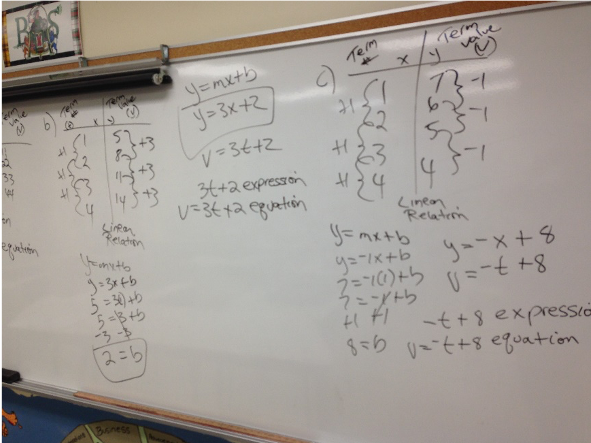 Term Value (V)
33
44
equation
b) Term # x y Term Value (V)
1 5
+1 +3
2 8
+1 +3
3 11
+1 +3
4 14
Linear Relation
y=mx+b
y=3x+b
5=3(1)+b
5=3+b
-3 -3
2=b
y=mx+b
y=3x+2
V=3t+2
3t+2 expression
V=3t+2 equation
c) Term # x y Term Value (V)
1 7
+1 -1
2 6
-1
+1 3 5
-1
+1 4 4
Linear Relation
y=mx+b
y=-1x+b
7=-1(1)+b
7=-1+b
+1 +1
8=b
y=-x+8
V=-t+8
-t+8 expressio
V=-t+8 equation
Business